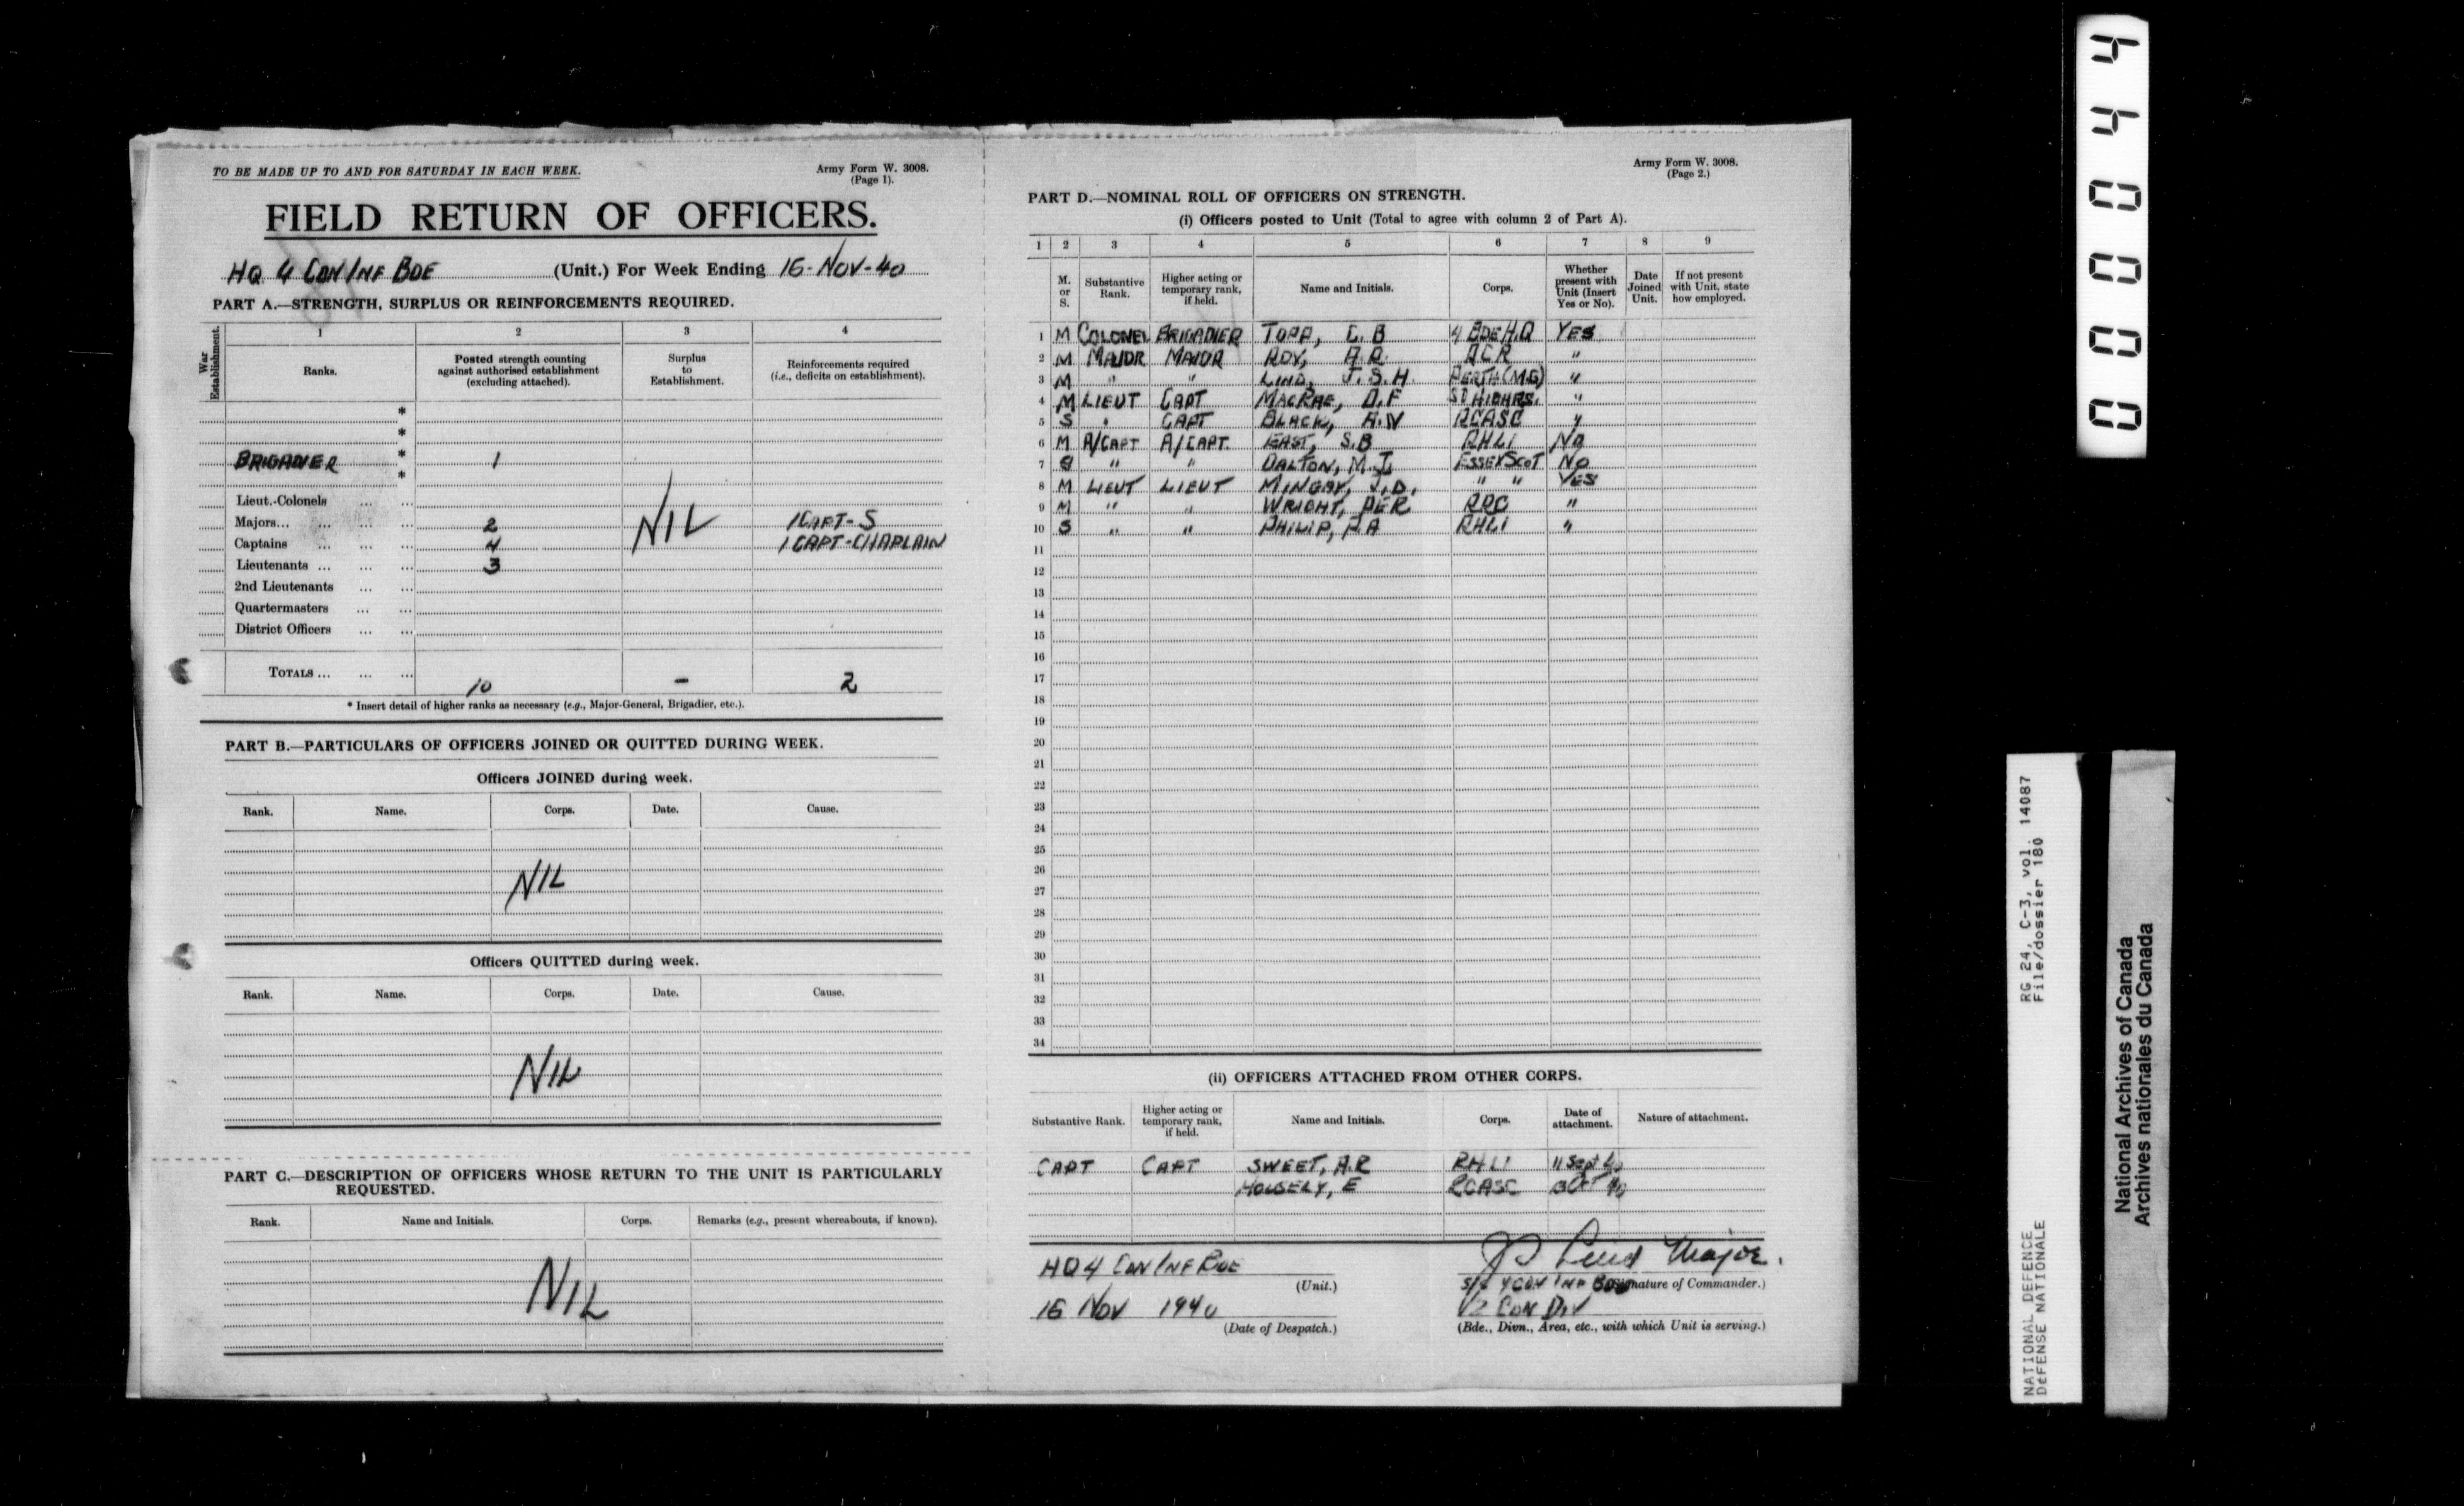 TO BE MADE UP TO AND FOR SATURDAY IN EACH WEEK.
Army Form W. 3008.
(Page 1).
FIELD RETURN OF OFFICERS.
HQ 4 CDN INF BDE (Unit.) For Week Ending 16-NOV-40
PART A.—STRENGTH, SURPLUS OR REINFORCEMENTS REQUIRED.
War Establishment.
1 2 3 4
Ranks.
Posted strength counting against authorised establishment (excluding attached).
Surplus to Establishment.
Reinforcements required (i.e., deficits on establishment).
*
*
BRIGADIER * 1
*
Lieut.-Colonels ... ...
NIL
Majors... ... ... ... 2 1 CAPT-S
Captains ... ... ... 4 1 CAPT-CHAPLAIN
Lieutenants ... ... ... 3
2nd Lieutenants ... ...
Quartermasters ... ...
District Officers ... ...
TOTALS ... ... ... 10 - 2
* Insert detail of higher ranks as necessary (e.g., Major-General, Brigadier, etc.).
PART B.—PARTICULARS OF OFFICERS JOINED OR QUITTED DURING WEEK.
Officers JOINED during week.
Rank. Name. Corps. Date. Cause.
NIL
Officers QUITTED during week.
Rank. Name. Corps. Date. Cause.
NIL
PART C.—DESCRIPTION OF OFFICERS WHOSE RETURN TO THE UNIT IS PARTICULARLY
REQUESTED.
Rank. Name and Initials. Corps. Remarks (e.g., present whereabouts, if known).
NIL
Army Form W. 3008.
(Page 2.)
PART D.—NOMINAL ROLL OF OFFICERS ON STRENGTH.
(i) Officers posted to Unit (Total to agree with column 2 of Part A).
1 2 3 4 5 6 7 8 9
M. or S.
Substantive Rank.
Higher acting or temporary rank, if held.
Name and Initials.
Corps.
Whether present with Unit (Insert Yes or No).
Date Joined Unit.
If not present with Unit, state how employed.
1 M COLONEL BRIGADIER TOPP, C.B 4 BDE H.Q YES
2 M MAJOR MAJOR ROY, A.R. RCR "
3 M " " LIND, J.S.H. PERTH (M.G) "
4 M LIEUT CAPT MACRAE, D.F SD HIGHRS. "
5 S " CAPT BLACK, A.W RCASC "
6 M A/CAPT A/CAPT. EAST, S.B RHLI NO
7 S " " DALTON, M.J. ESSEX SCOT NO
8 M LIEUT LIEUT MINGAY, J.D. " " YES
9 M " " WRIGHT, DER RRC "
10 S " " PHILIP, R.A RHLI "
11
12
13
14
15
16
17
18
19
20
21
22
23
24
25
26
27
28
29
30
31
32
33
34
(ii) OFFICERS ATTACHED FROM OTHER CORPS.
Substantive Rank.
Higher acting or temporary rank, if held.
Name and Initials.
Corps.
Date of attachment.
Nature of attachment.
CAPT CAPT SWEET, A.R RHLI 11 Sept 40
E RCASC OCT 40
HQ 4 CDN INF BDE
(Unit.)
Lind Major.
4 CDN INF BDE (Signature of Commander.)
16 NOV 1940
(Date of Despatch.)
2 CDN DIV
(Bde., Divn., Area, etc., with which Unit is serving.)
000044
NATIONAL DEFENCE RG 24, C-3, vol. 14087
DÉFENSE NATIONALE File/dossier 180
National Archives of Canada
Archives nationales du Canada